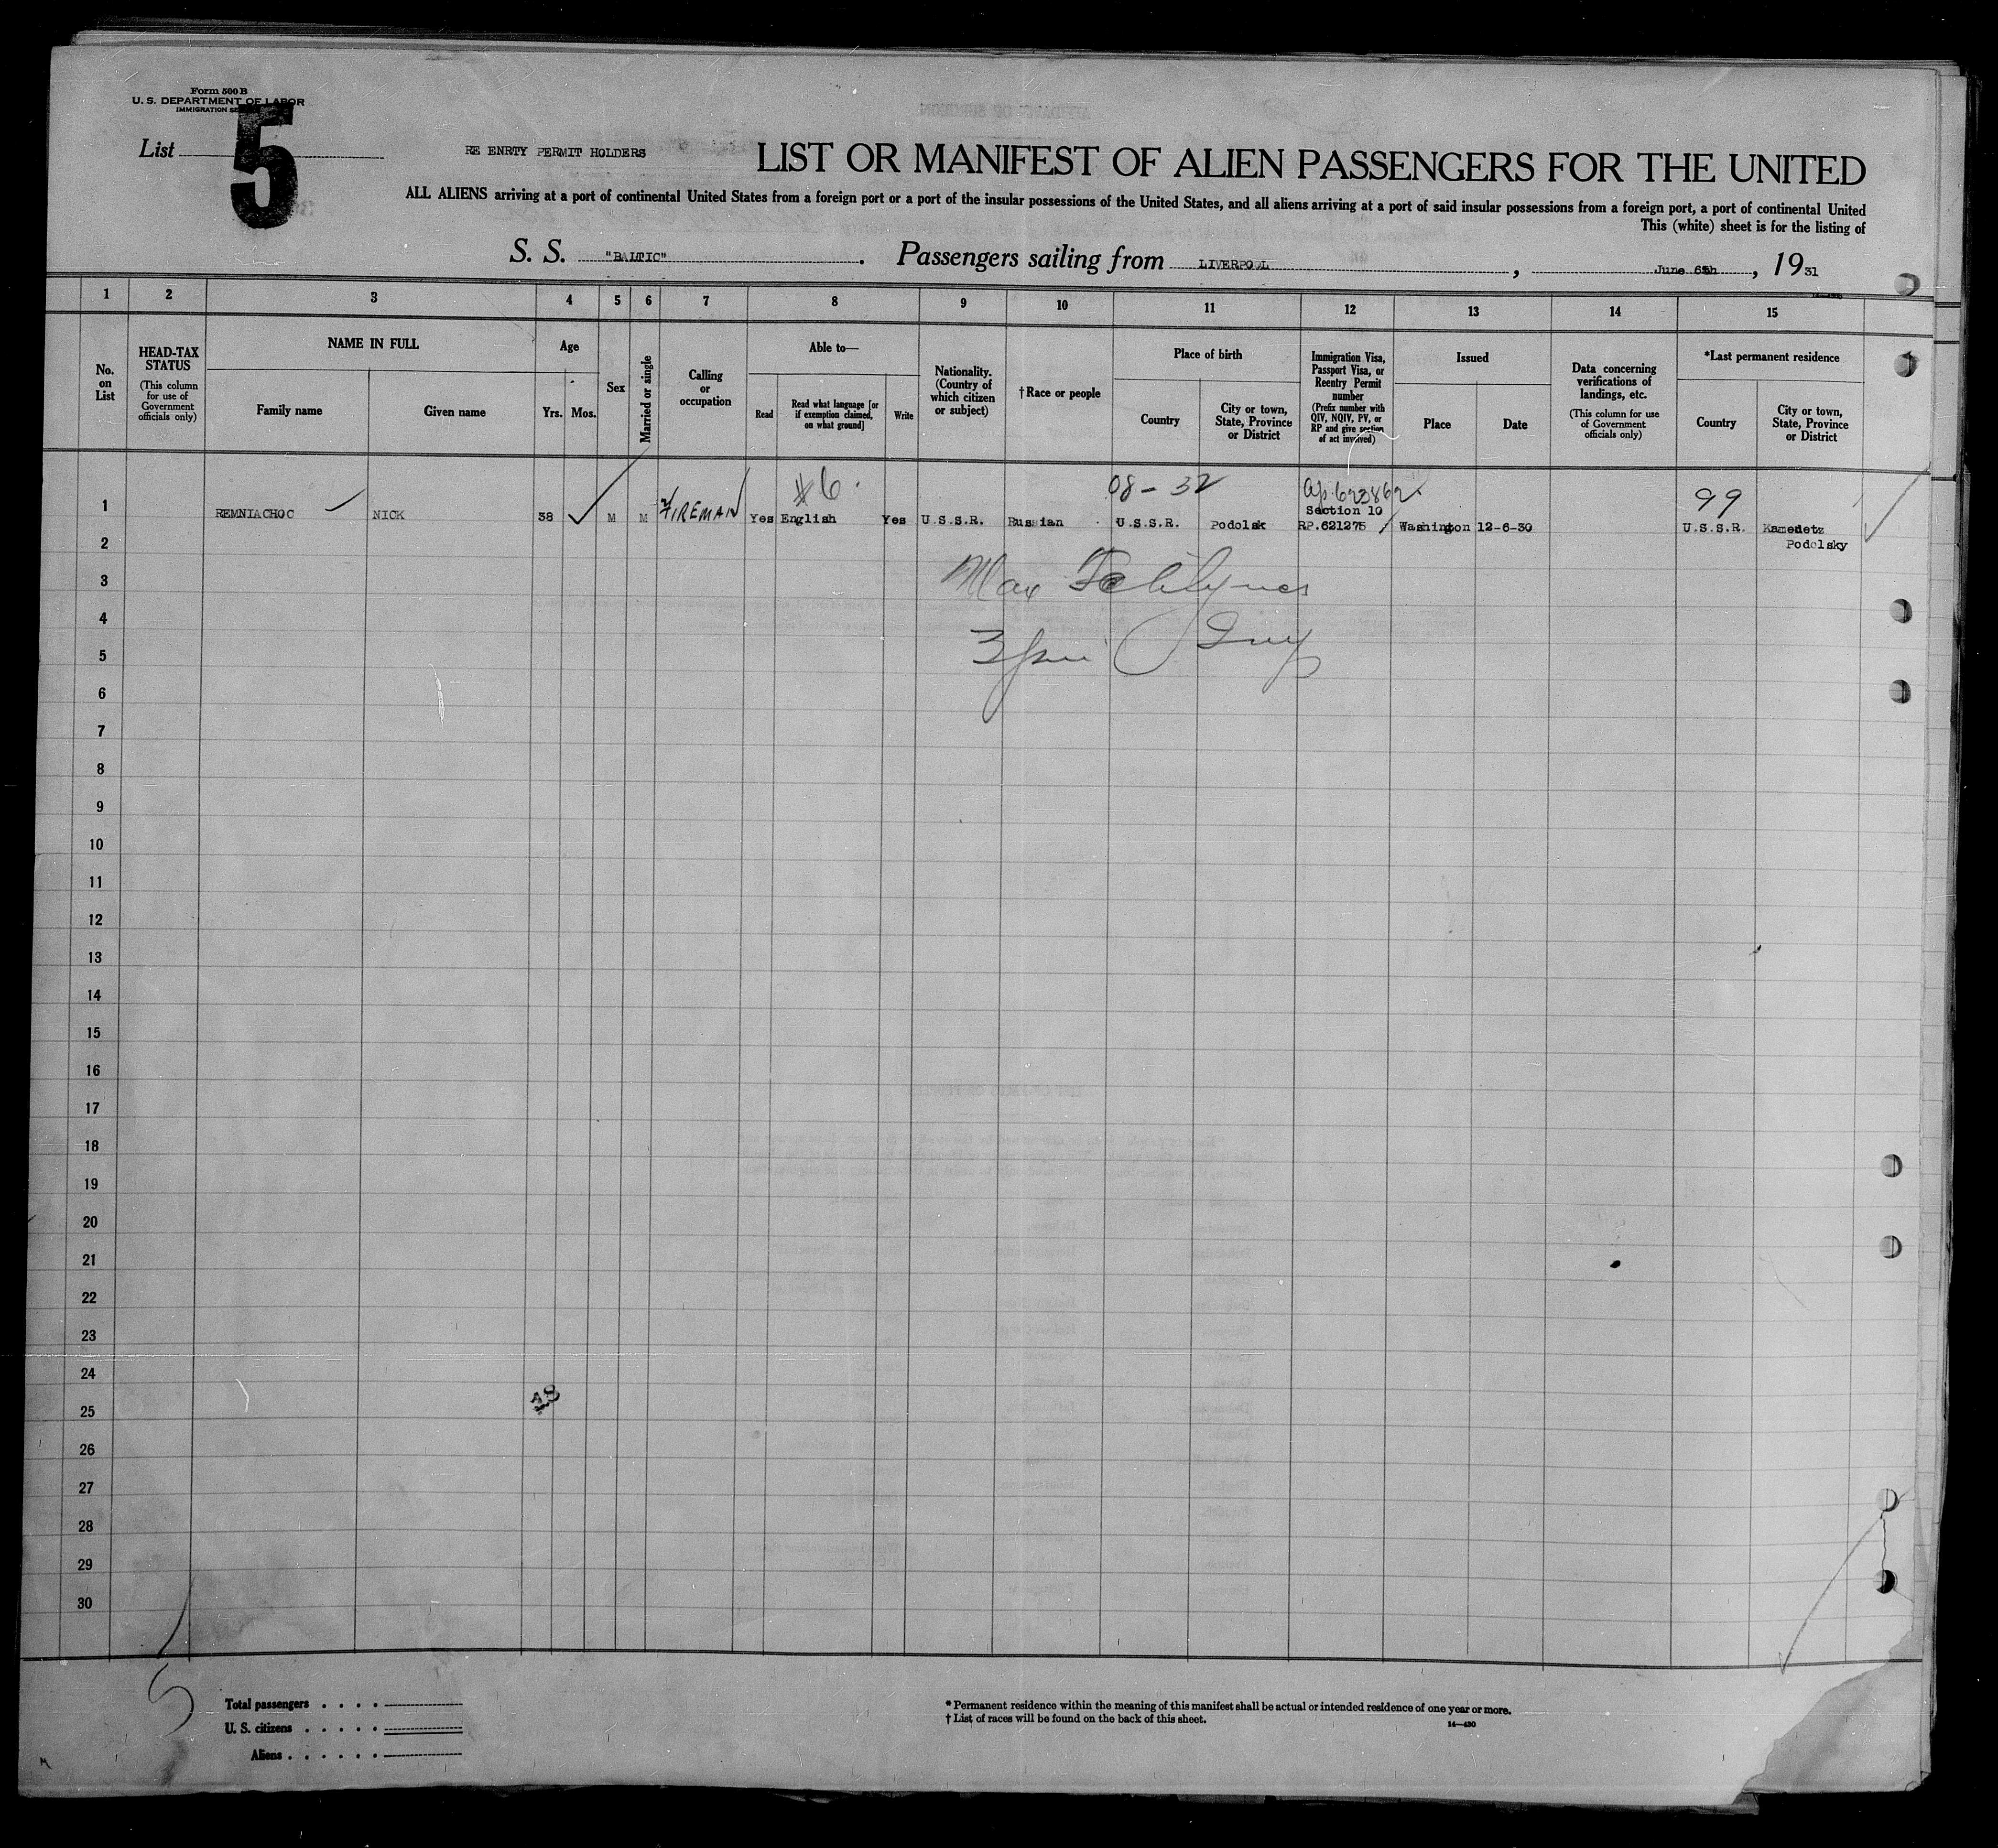 Form 500 B
U. S. DEPARTMENT OF LABOR
IMMIGRATION
List 5
RE ENRTY PERMIT HOLDERS
LIST OR MANIFEST OF ALIEN PASSENGERS FOR THE UNITED
ALL ALIENS arriving at a port of continental United States from a foreign port or a port of the insular possessions of the United States, and all aliens arriving at a port of said insular possessions from a foreign port, a port of continental United
This (white) sheet is for the listing of
S. S. "BALTIC". Passengers sailing from LIVERPOOL, June 6th, 1931
1 2 3 4 5 6 7 8 9 10 11 12 13 14 15
No. on List
HEAD-TAX STATUS
(This column for use of Government officials only)
NAME IN FULL
Family name
Given name
Age
Yrs. Mos.
Sex
Married or single
Calling or occupation
Able to—
Read
Read what language [or if exemption claimed, on what ground]
Write
Nationality. (Country of which citizen or subject)
†Race or people
Place of birth
Country
City or town, State, Province or District
Immigration Visa, Passport Visa, or Reentry Permit number
(Prefix number with QIV, NQIV, PV, or RP and give section of act involved)
Issued
Place
Date
Data concerning verifications of landings, etc.
(This column for use of Government officials only)
*Last permanent residence
Country
City or town, State, Province or District
6 08-32 623862 99
Section 10
1 REMNIACHOC NICK 38 M M FIREMAN Yes English Yes U.S.S.R. Russian U.S.S.R. Podolsk RP.621275 Washington 12-6-30 U.S.S.R. Kamenetz
Podolsky
2
3 Max
4
5
6
7
8
9
10
11
12
13
14
15
16
17
18
19
20
21
22
23
24
25
26
27
28
29
30
5
Total passengers . . . .
U. S. citizens . . . . .
Aliens . . . . . .
* Permanent residence within the meaning of this manifest shall be actual or intended residence of one year or more.
† List of races will be found on the back of this sheet.
14—430